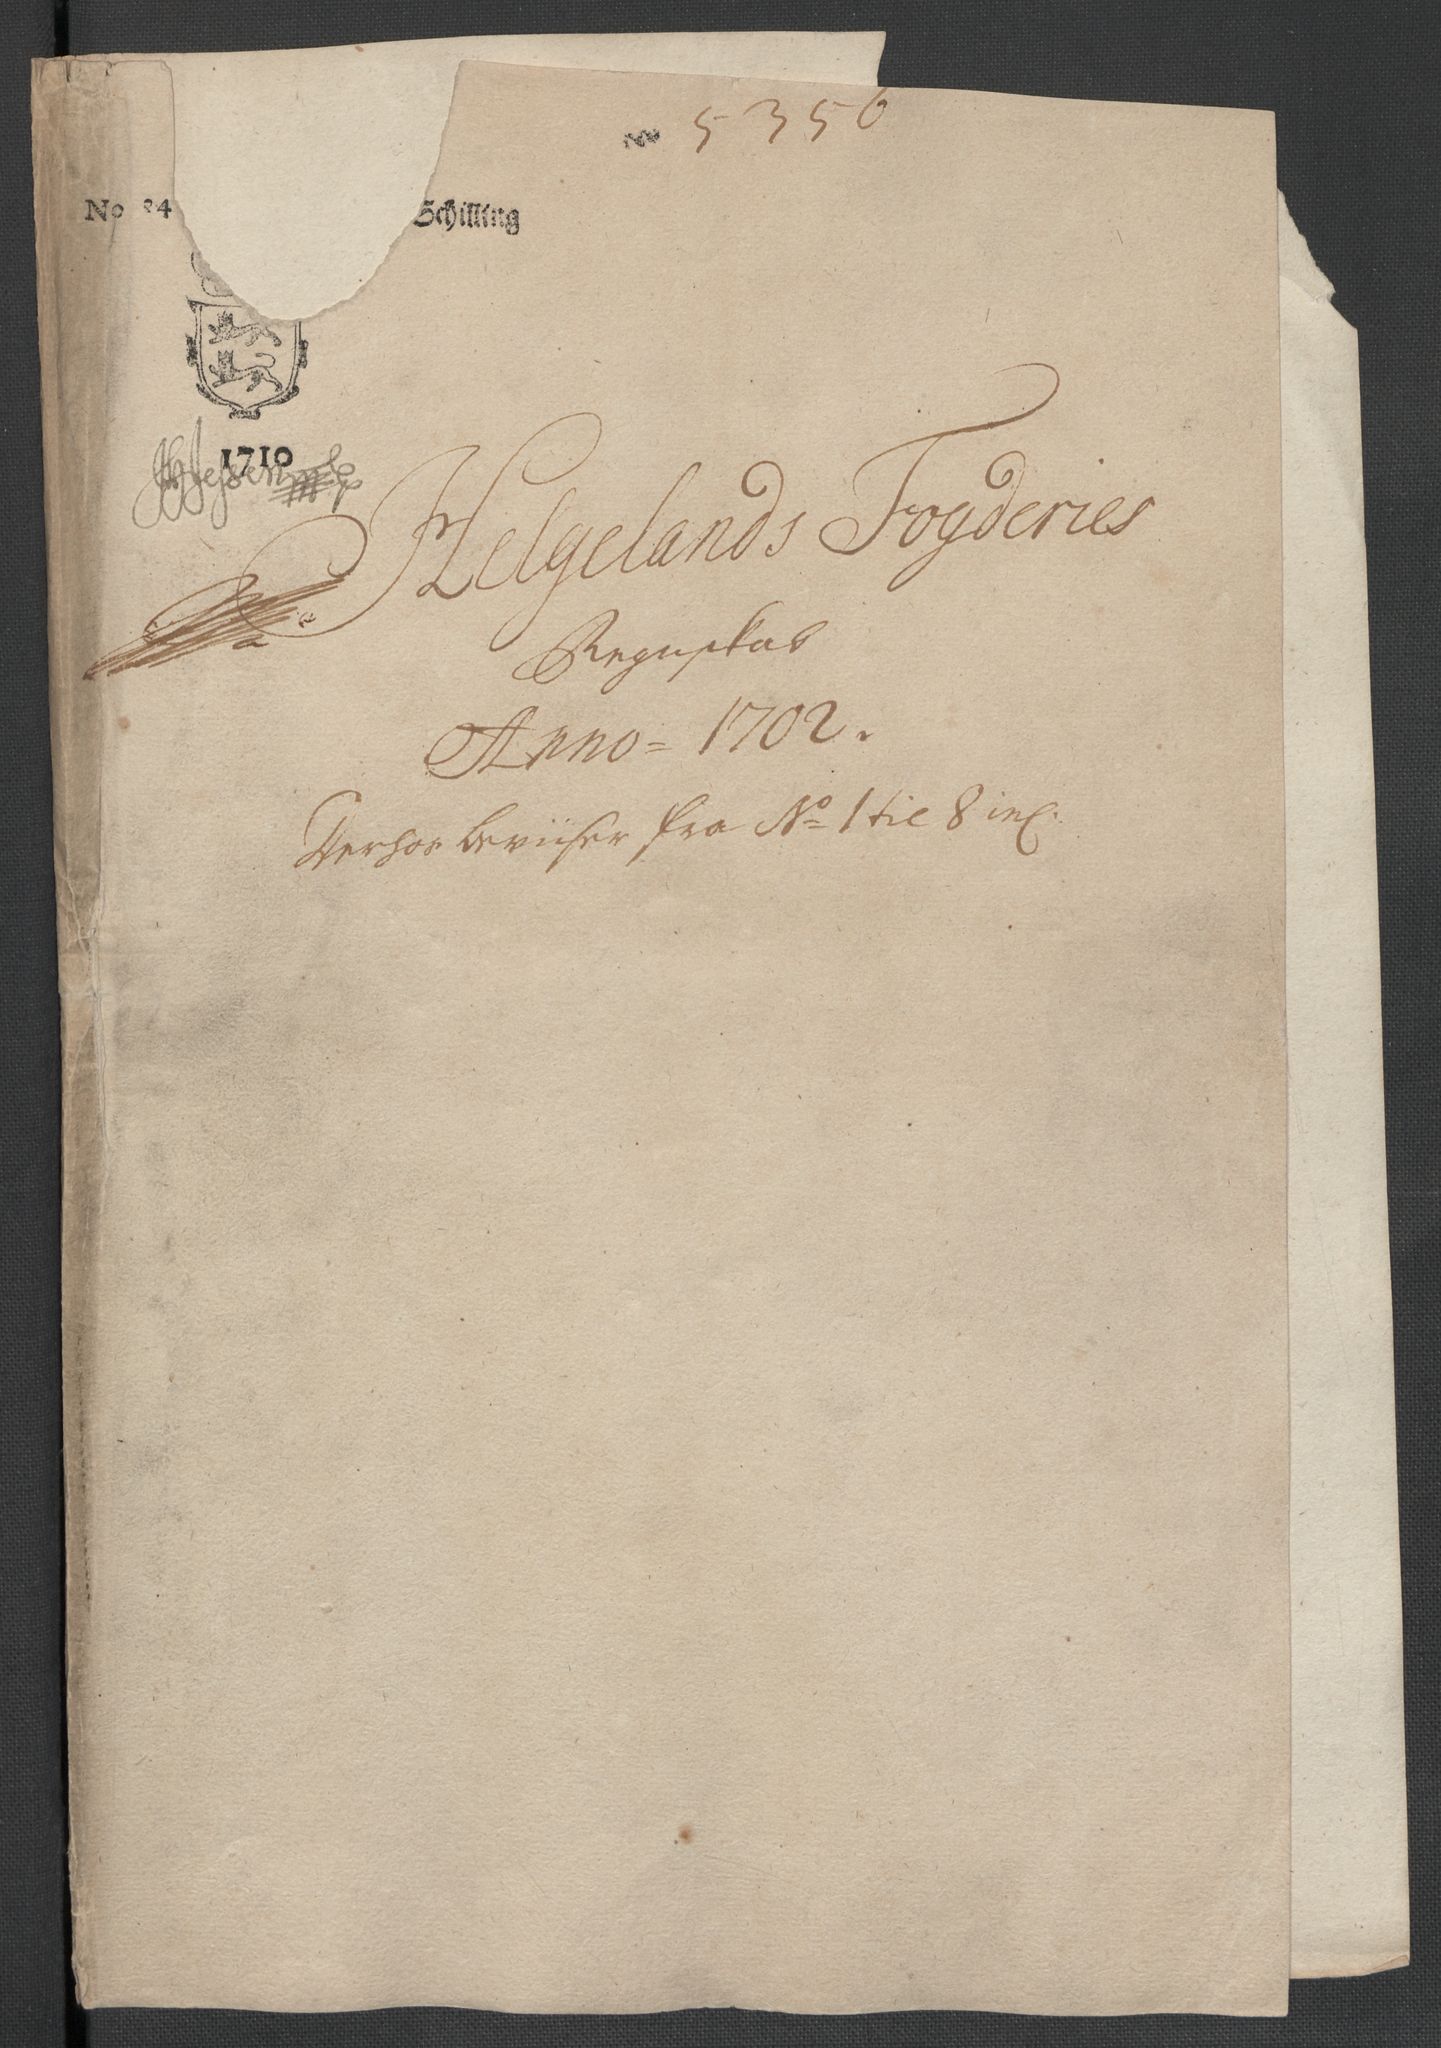 5356
No 84 Schilling
1710
Helgelands Fogderies
Regnskab
Anno = 1702.
Derhos beviiser fra No 1 til 8 incl.